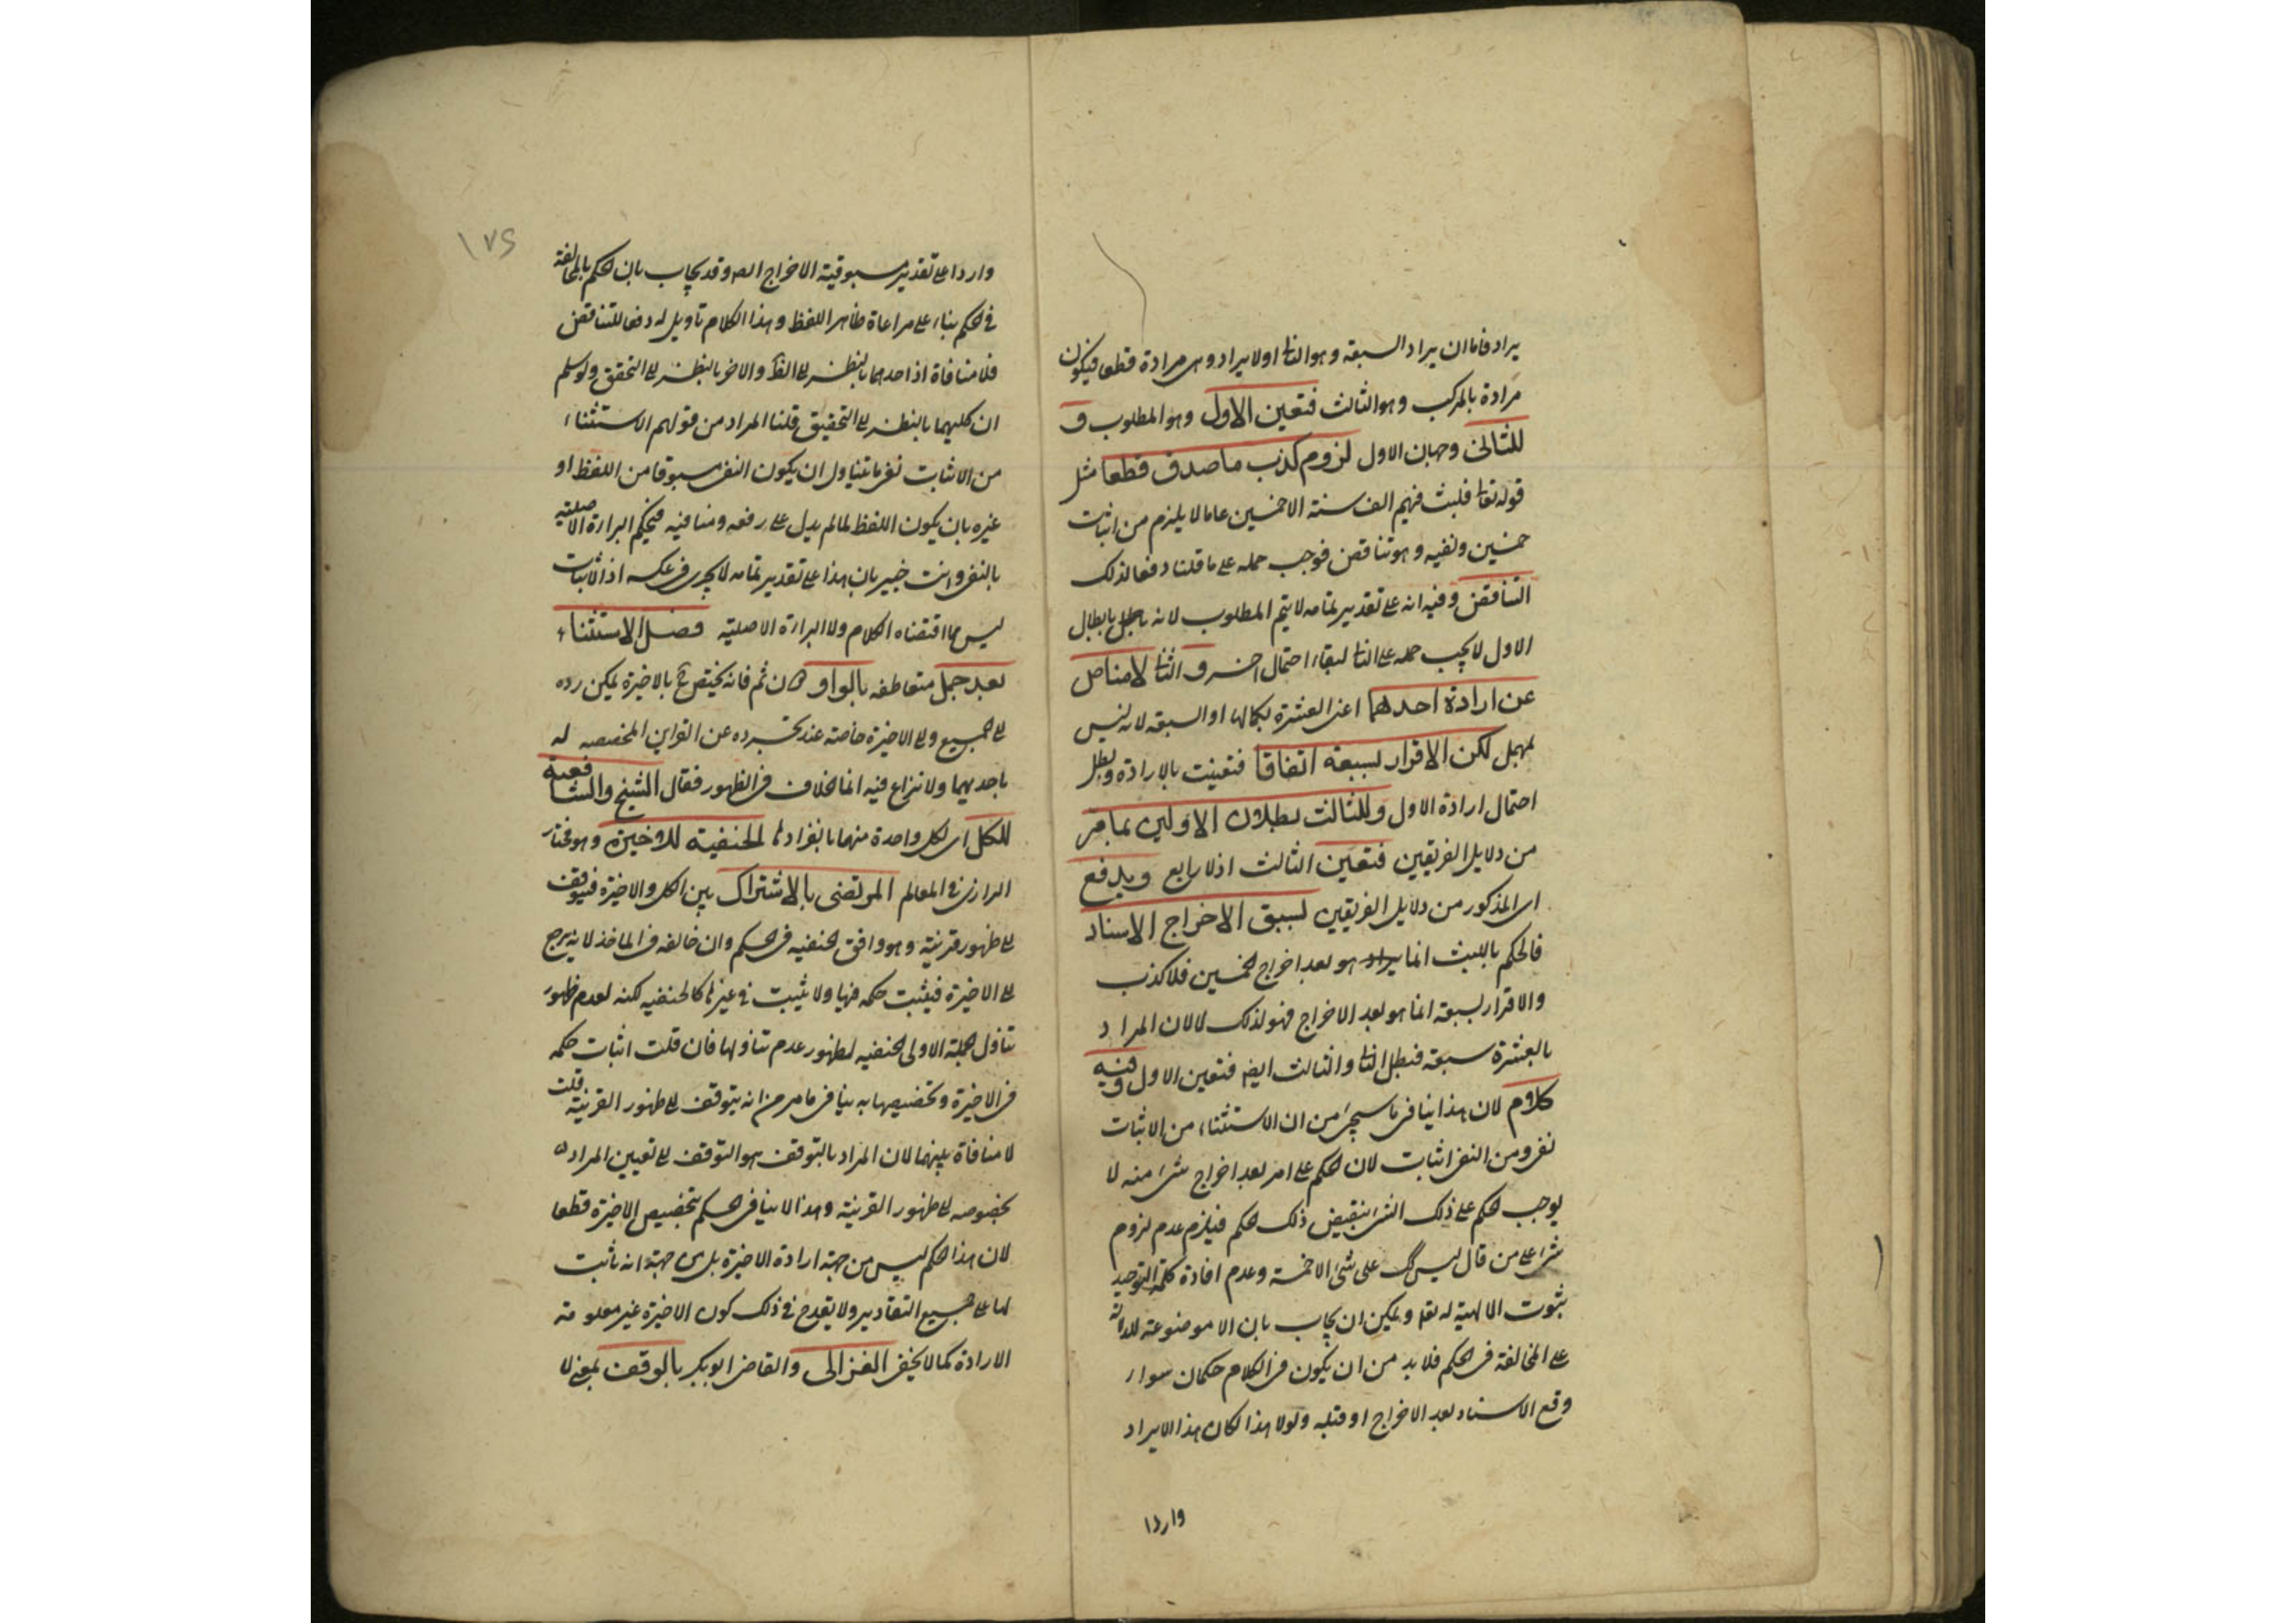 يراد فاما ان يراد السبعة وهو الثا اولا يراد وهى مرادة قطعا فيكون
مرادة بالمركب وهو الثالث فتعين الاول وهو المطلوب و
للثانى وجهان الاول لزوم كذب ما صدق قطعا مثل
قوله تعا فلبث فيهم الف سنة الا خمسين عاما لا يلزم من اثبات
خمسين ونفيه وهو تناقض فوجب حمله على ما قلنا دفعا لذلك
التناقض وفيه انه على تقدير تمامه لا يتم المطلوب لانه بابطال
الاول لا يجب حمله على الثا لبقاء احتمال اخر و الثا لا مناص
عن ارادة احدهما اعنى العشرة بكمالها او السبعة لانه ليس
بمهمل لكن الاقرار بسبعة اتفاقا فتعينت بالارادة وبطل
احتمال ارادة الاول وللثالث بطلان الاولين بما مر
من دلايل الفريقين فتعين الثالث اذ لا رابع ويدفع
اى المذكور من دلايل الفريقين بسبق الاخراج الاسناد
فالحكم باللبث انما هو بعد اخراج الخمسين فلا كذب
والاقرار بسبعة انما هو بعد الاخراج فهو لذلك لا لان المراد
بالعشرة سبعة فبطل الثا والثالث ايضا فتعين الاول وفيه
كلام لان هذا ينافى ما سيجئ من ان الاستثناء من الاثبات
نفى ومن النفى اثبات لان الحكم على امر بعد اخراج شئ منه لا
يوجب الحكم على ذلك الشئ بنقيض ذلك الحكم فيلزم عدم لزوم
شئ على من قال ليس لك على شئ الا خمسة وعدم افادة كلمة التوحيد
ثبوت الالهية له تعا ويمكن ان يجاب بان الا موضوعة للدلالة
على المخالفة فى الحكم فلا بد من ان يكون فى الكلام حكمان سواء
وقع الاسناد بعد الاخراج او قبله ولولا هذا لكان هذا الايراد
واردا
١٧٤
واردا على تقدير مسبوقية الاخراج وقد يجاب بان الحكم بالمخالفة
فى الحكم بناء على مراعاة ظاهر اللفظ وهذا الكلام تأويل له دفعا للتناقض
فلا منافاة اذ احدهما بالنظر الى الظ والاخر بالنظر الى التحقق ولو سلم
ان كليهما بالنظر الى التحقيق قلنا المراد من قولهم الاستثناء
من الاثبات نفى ما يتناول ان يكون النفى مسبوقا من اللفظ او
غيره بان يكون اللفظ لما لم يدل على رفعه ومنافيه فيحكم البراءة الاصلية
بالنفى وانت خبير بان هذا على تقدير تمامه لا يجرى فى عكسه اذ الاثبات
ليس مما اقتضاه الكلام ولا البراءة الاصلية فصل الاستثناء
بعد جمل متعاطفة بالواو ثم فانه يختص ح بالاخيرة يمكن رده
الى الجميع والى الاخيرة خاصة عند تجرده عن القراين المخصصة له
باحديهما ولا نزاع فيه انما الخلاف فى الظهور فقال الشيخ والشافعية
للكل اى لكل واحدة منهما بانفرادها الحنفية للاخيرة وهو مختار
الرازى فى المعالم المرتضى بالاشتراك بين الكل والاخيرة فيتوقف
الى ظهور قرينة وهو وافق الحنفيه فى الحكم وان خالفه فى الماخذ لانه يرجع
الى الاخيرة فيثبت حكمه فيها ولا يثبت فى غيرها كالحنفيه لكنه لعدم ظهور
تناول الجملة الاولى الحنفيه لظهور عدم تناولها فان قلت اثبات حكمه
فى الاخيرة وتخصيصها به ينافى ما مر من انه يتوقف الى ظهور القرينة قلت
لا منافاة بينهما لان المراد بالتوقف هو التوقف الى تعيين المراد
بخصوصه الى ظهور القرينة وهذا لا ينافى الحكم بتخصيص الاخيرة قطعا
لان هذا الحكم ليس من جهة ارادة الاخيرة بل من جهة انه ثابت
لها على جميع التقادير ولا يقدح فى ذلك كون الاخيرة غير معلومة
الارادة كما لا يخفى الغزالى والقاضى ابو بكر بالوقف بمعنى لا